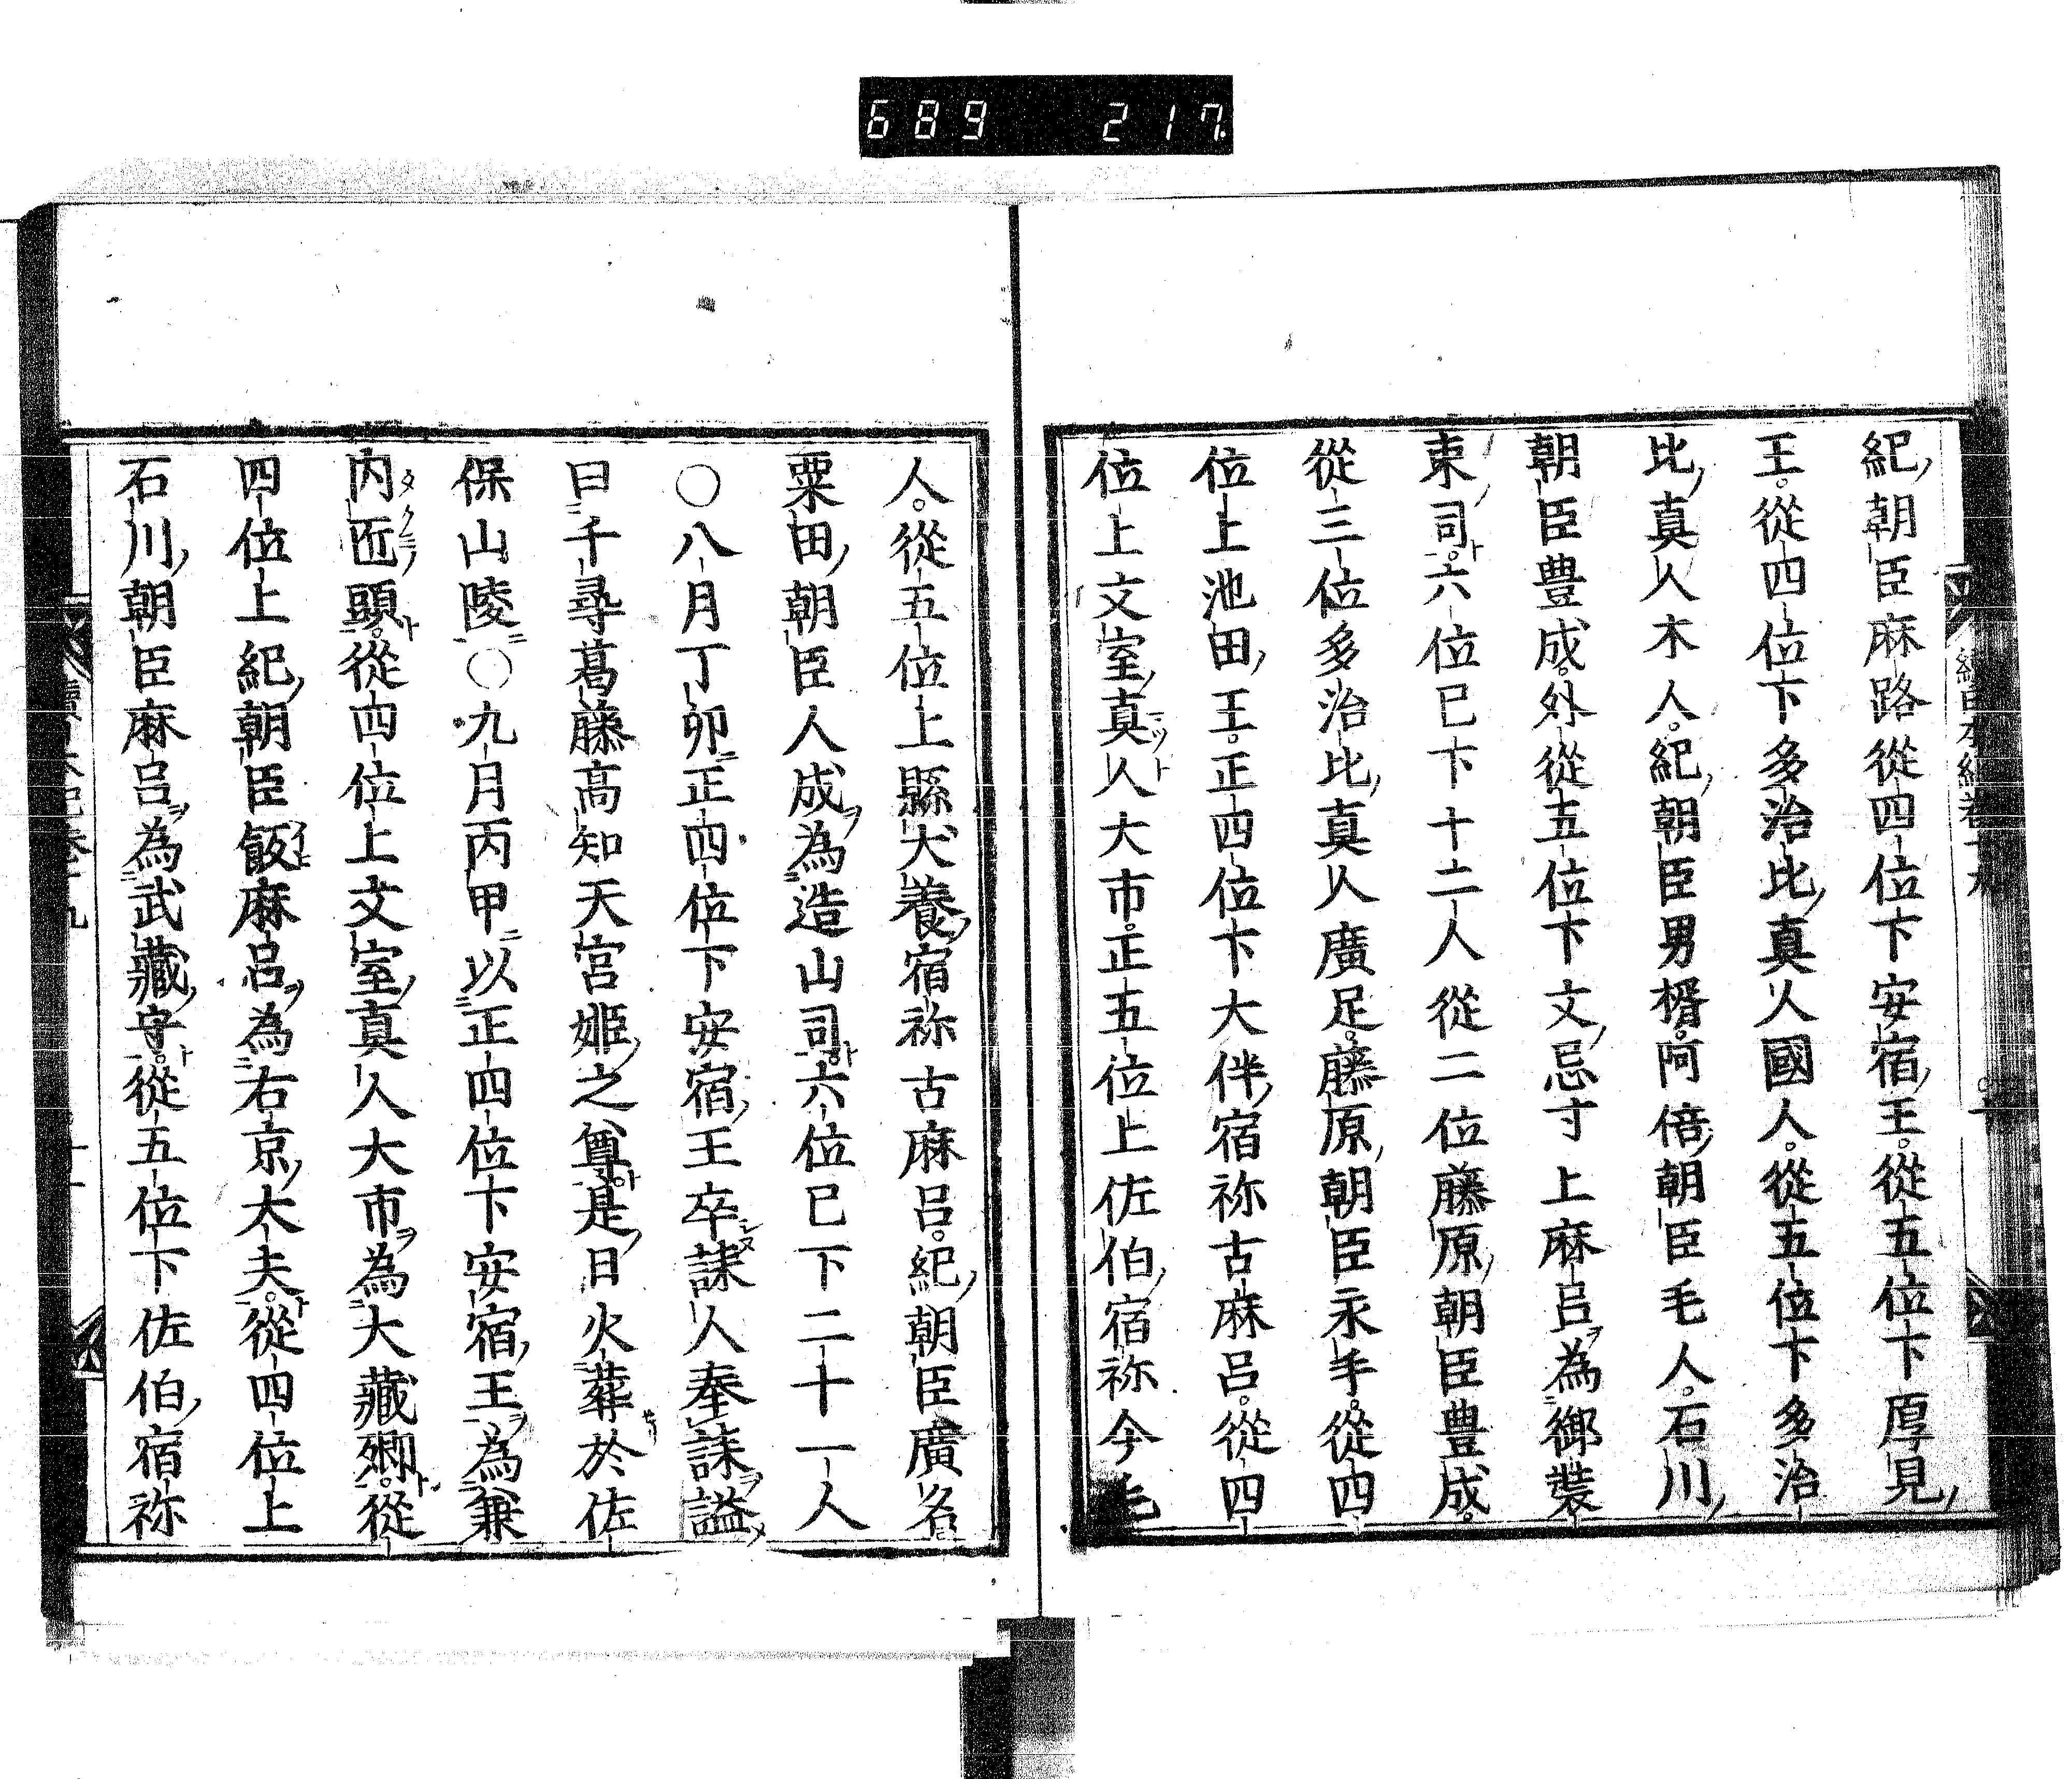 689 217
紀朝臣麻路從四位下安宿王。從五位下厚見
王。從四位下多治比真人國人。從五位下多治
比真人木人。紀朝臣男楫。阿倍朝臣毛人。石川
朝臣豊成。外從五位下文忌寸上麻呂為御裝
束司。六位已下十二人從二位藤原朝臣豊成。
從三位多治比真人廣足。藤原朝臣永手。從四
位上池田王。正四位下大伴宿祢古麻呂。從四
位上文室真人大市。正五位上佐伯宿祢今毛
人。從五位上縣犬養宿祢古麻呂。紀朝臣廣名
粟田朝臣人成為造山司。六位已下二十一人
〇八月丁卯正四位下安宿王卒誄人奉誄謚
曰千尋葛藤高知天宮姫之尊。是日火葬於佐
保山陵〇九月丙甲以正四位下安宿王為兼
内匠頭。從四位上文室真人大市為大藏卿。從
四位上紀朝臣飯麻呂為右京大夫。從四位上
石川朝臣麻呂為武藏守。從五位下佐伯宿祢